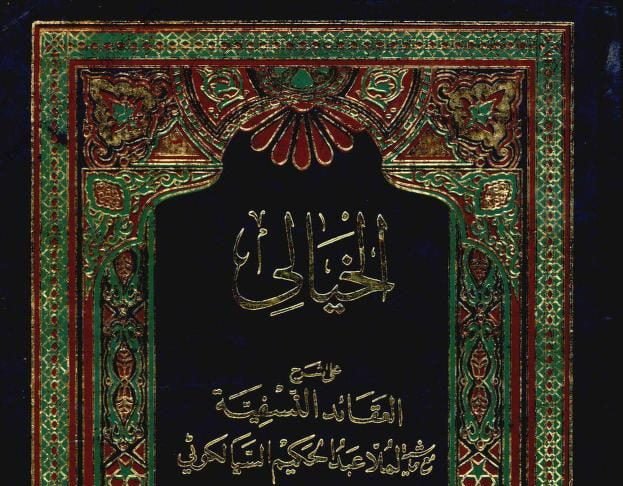 الخيالي
على شرح
العقائد النسفية
مع حاشية الملا عبد الحكيم السيالكوتي